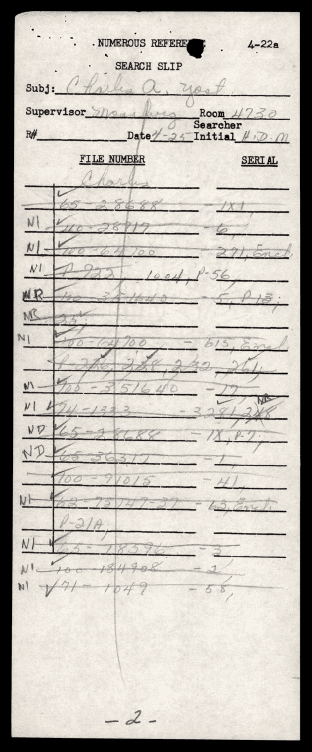 NUMEROUS REFERENCE 4-22a
SEARCH SLIP
Subj: Charles A. Yost
Supervisor Room 4730
R# Date 4-25 Searcher Initial H.D.M
FILE NUMBER SERIAL
Charles
65-28688 -1X1
NI 40-28917 -6,
NI 100-64700 -271, Encl
NI P-922 1004, P-56,
NR 100-351640 -5, P.13;
NR 257
NI 100-64700 -615, Encl
P-226, 228, 232, 261,
NI 100-351640 -17, NR
NI 74-1333 -3,281,248
ND 65-28688 -1X, P-7;
ND 65-36317 -1,
100-71015 -41,
NI 62-73747-37 -13, Encl
P-21A,
NI 65-18396 -3
NI 100-184908 -2,
NI 71-1049 -58,
-2-